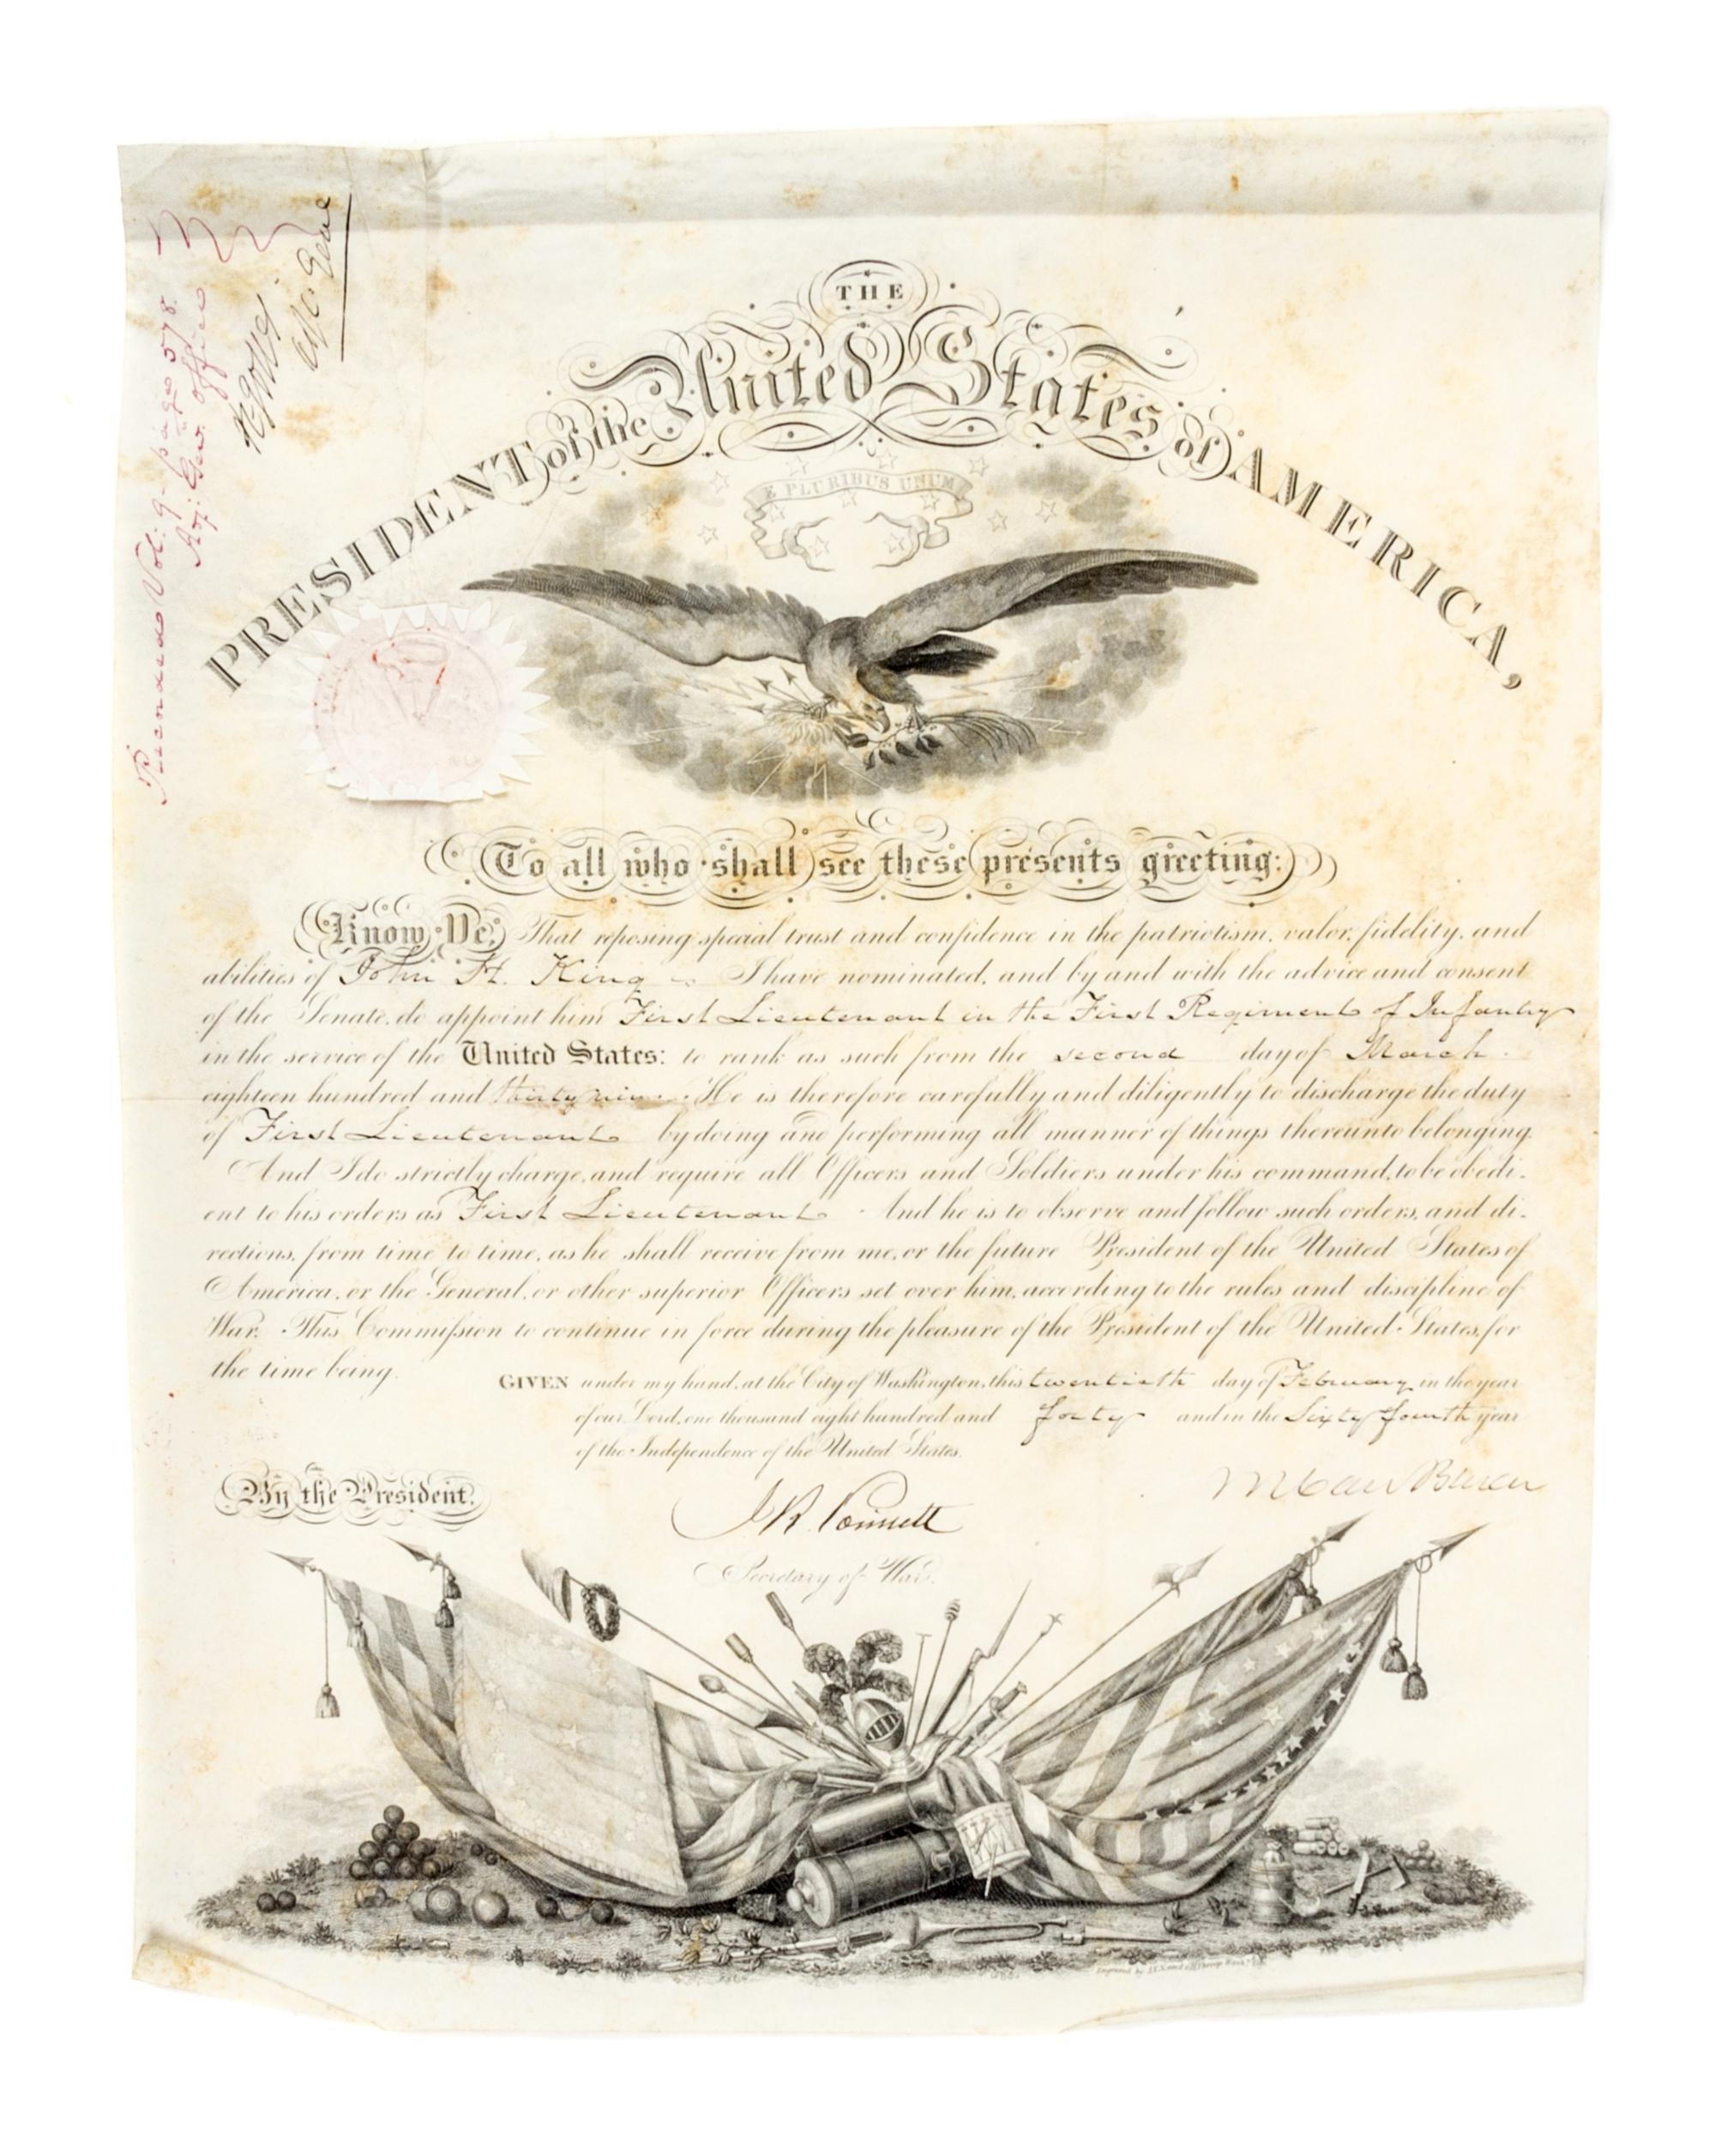 THE
PRESIDENT of the United States of AMERICA,
E PLURIBUS UNUM
Recorded Vol: 9 page 578
Adj: Gen: Office
R Jones
Adj. Genl
To all who shall see these presents greeting:
Know Ye, That reposing special trust and confidence in the patriotism, valor, fidelity, and
abilities of John H. King I have nominated, and by and with the advice and consent
of the Senate, do appoint him First Lieutenant in the First Regiment of Infantry
in the service of the United States: to rank as such from the second day of March
eighteen hundred and thirty nine. He is therefore carefully and diligently to discharge the duty
of First Lieutenant by doing and performing all manner of things thereunto belonging.
And I do strictly charge, and require all Officers and Soldiers under his command, to be obedi-
ent to his orders as First Lieutenant. And he is to observe and follow such orders, and di-
rections, from time to time, as he shall receive from me, or the future President of the United States of
America, or the General, or other superior Officers set over him, according to the rules and discipline of
War. This Commission to continue in force during the pleasure of the President of the United States, for
the time being.
GIVEN under my hand, at the City of Washington, this twentieth day of February in the year
of our Lord, one thousand eight hundred and forty and in the Sixty fourth year
of the Independence of the United States.
By the President.
M Van Buren
J R. Poinsett
Secretary of War.